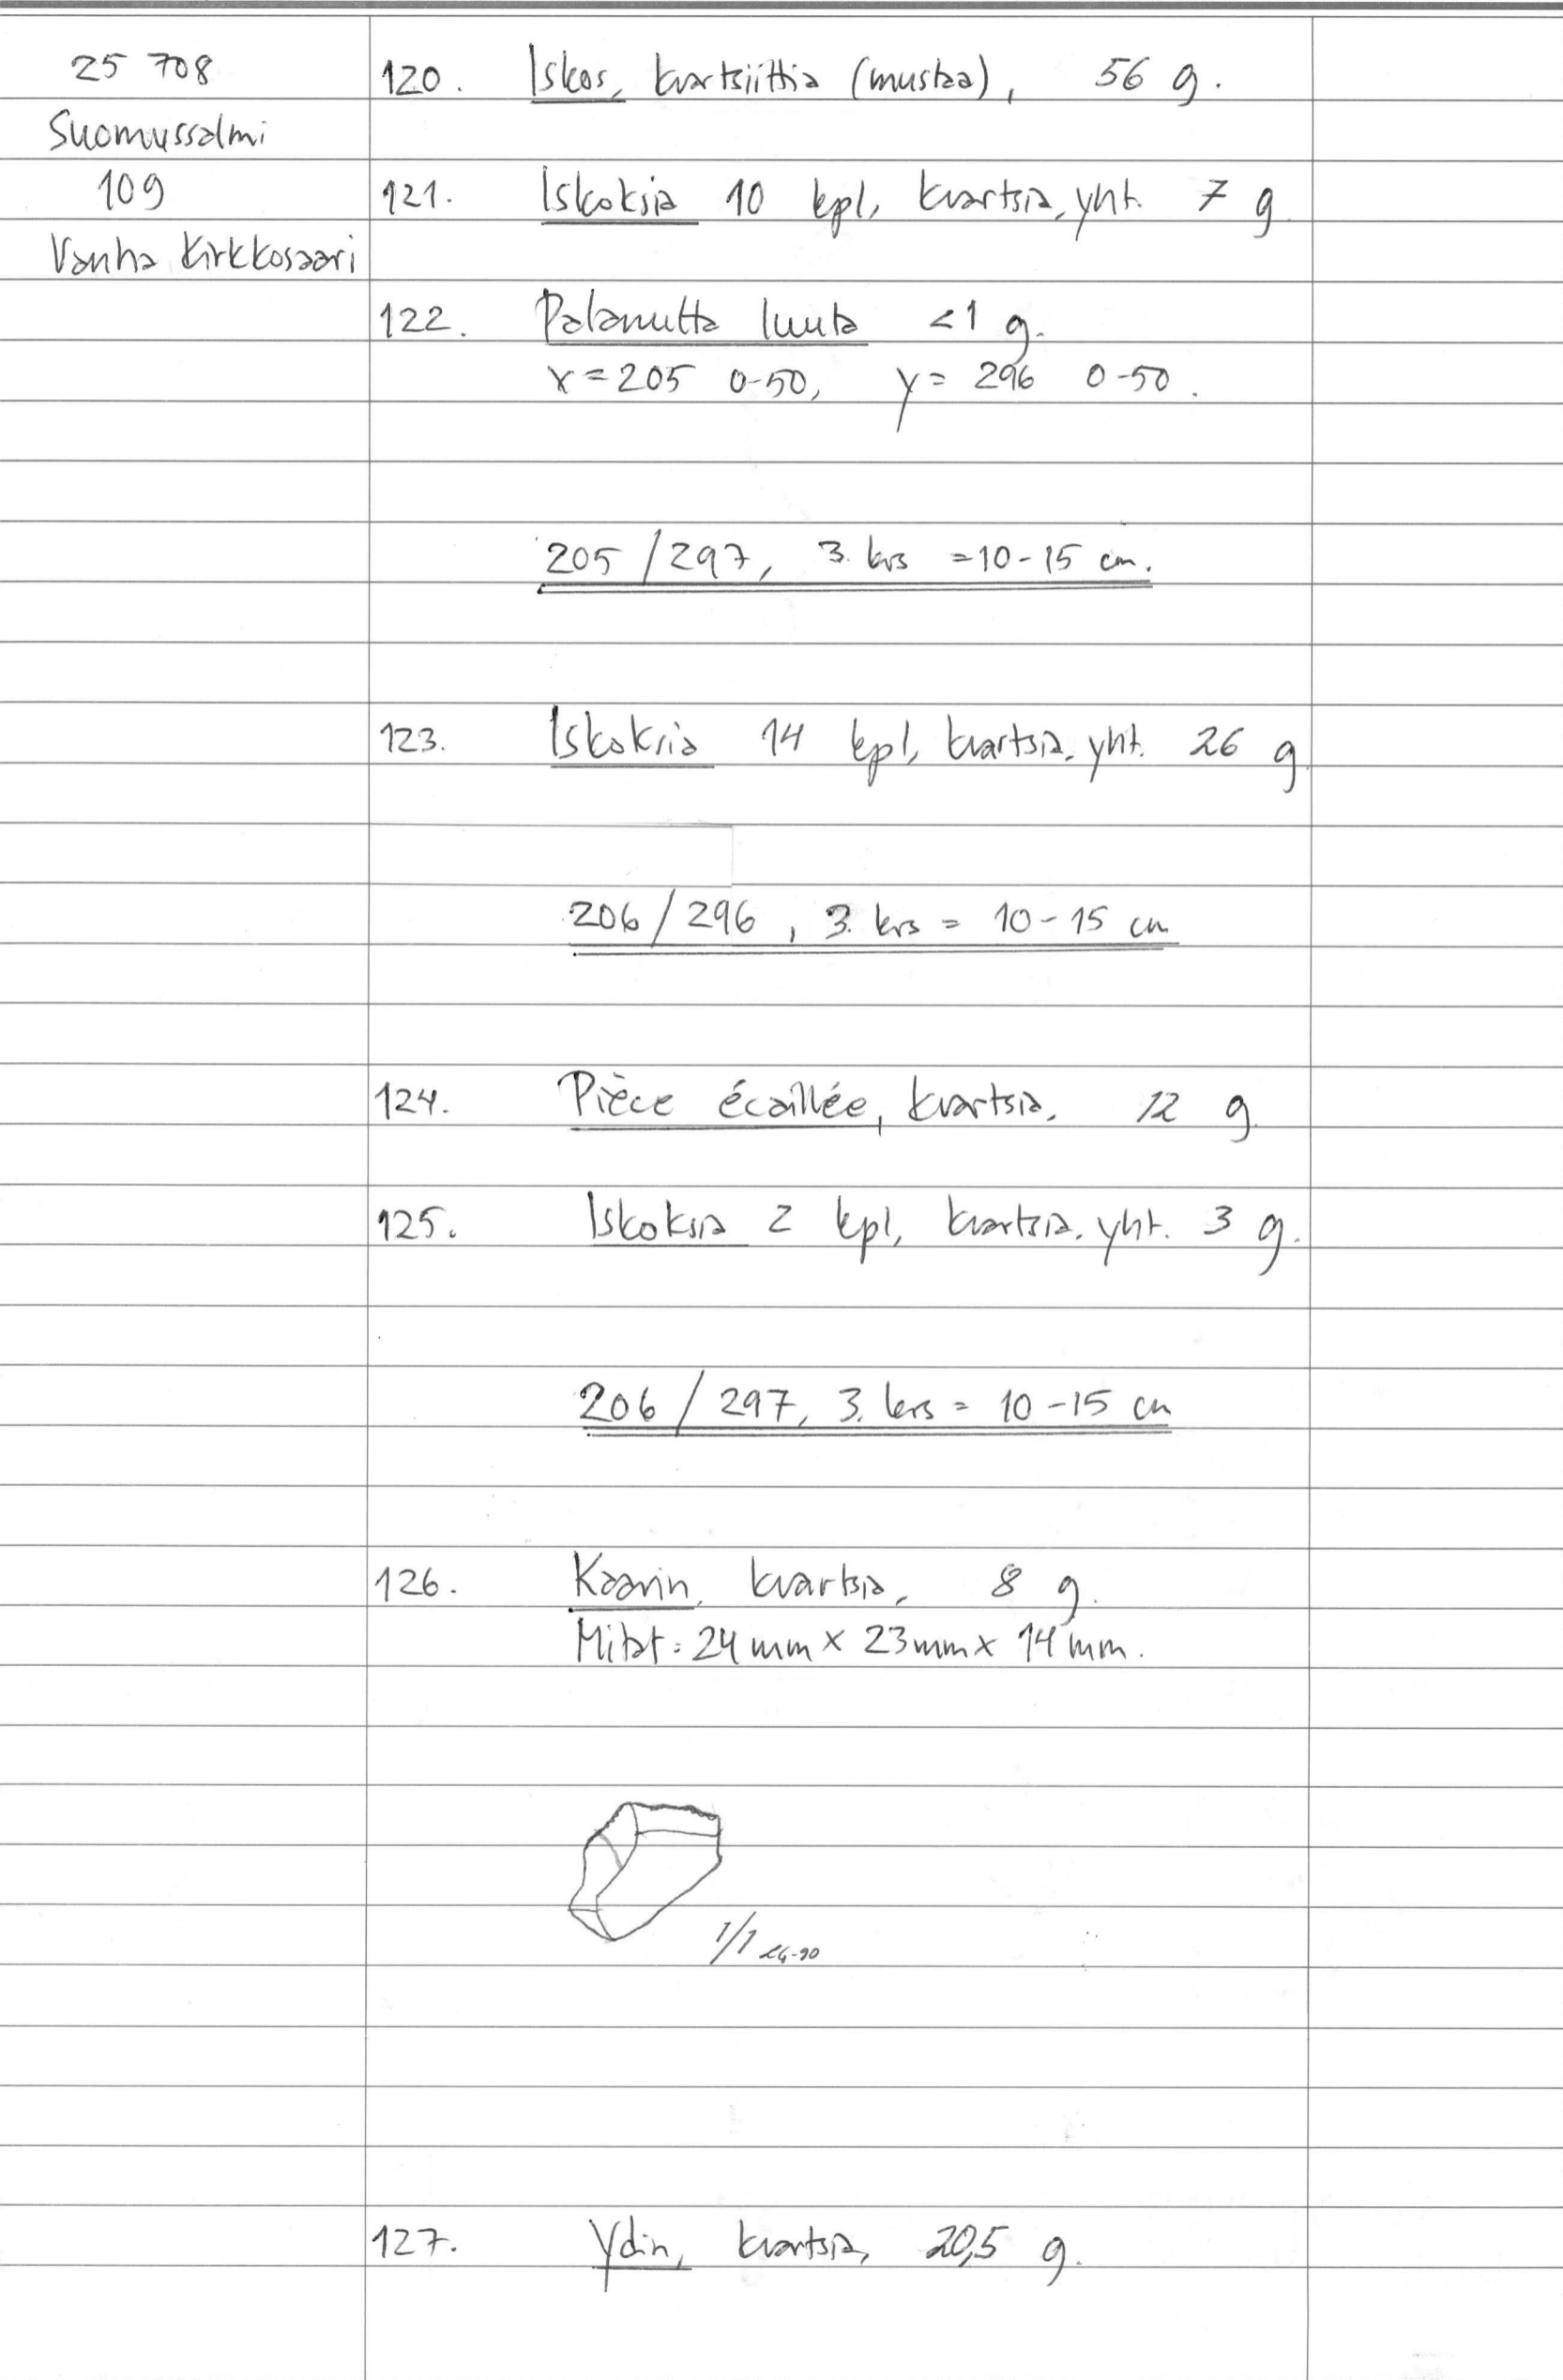 25 708
Suomussalmi
109
Vanha Kirkkosaari
120. Iskos, kvartsiittia (mustaa), 56 g.
121. Iskoksia 10 kpl, kvartsia, yht. 7 g
122. Palanutta luuta <1 g.
x = 205 0-50, y = 296 0-50.
205 / 297, 3. krs = 10-15 cm.
123. Iskoksia 14 kpl, kvartsia, yht. 26 g
206 / 296, 3. krs = 10-15 cm
124. Pièce écaillée, kvartsia, 12 g
125. Iskoksia 2 kpl, kvartsia, yht. 3 g.
206 / 297, 3. krs = 10-15 cm
126. Kaavin, kvartsia, 8 g.
Mitat: 24 mm x 23 mm x 14 mm.
1/1
127. Ydin, kvartsia, 20,5 g.